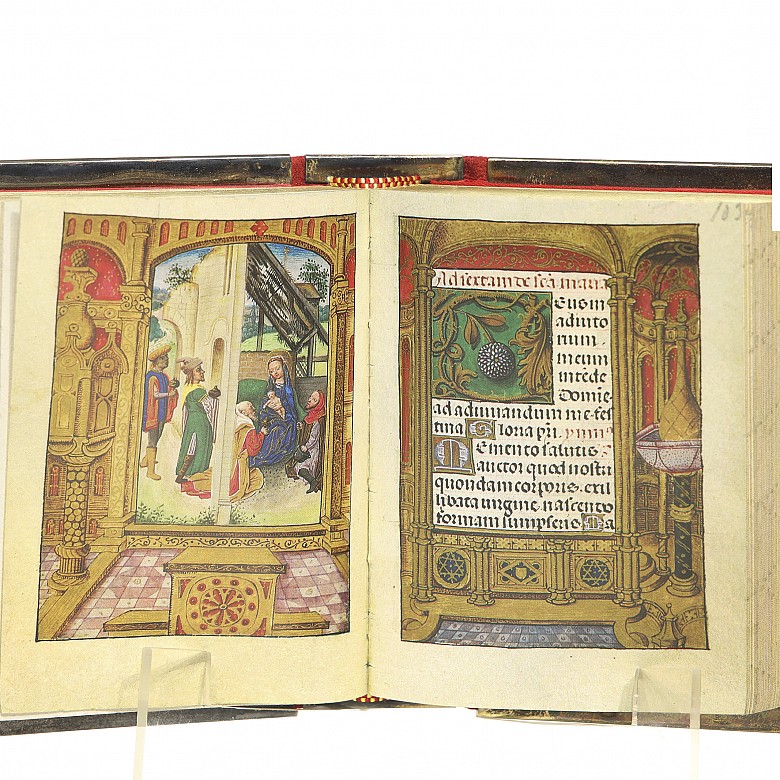 103
Ad sextam de scā maria
Deus in
adiuto
rium
meum
intēde
Domīe
ad adiuuandum me festi
tina Gloria pr̄i. ymn⁹
Memento salutis
auctor quod nostri
quondam corporis. ex il
libata uirgine nascendo
formam sumpseris Ma